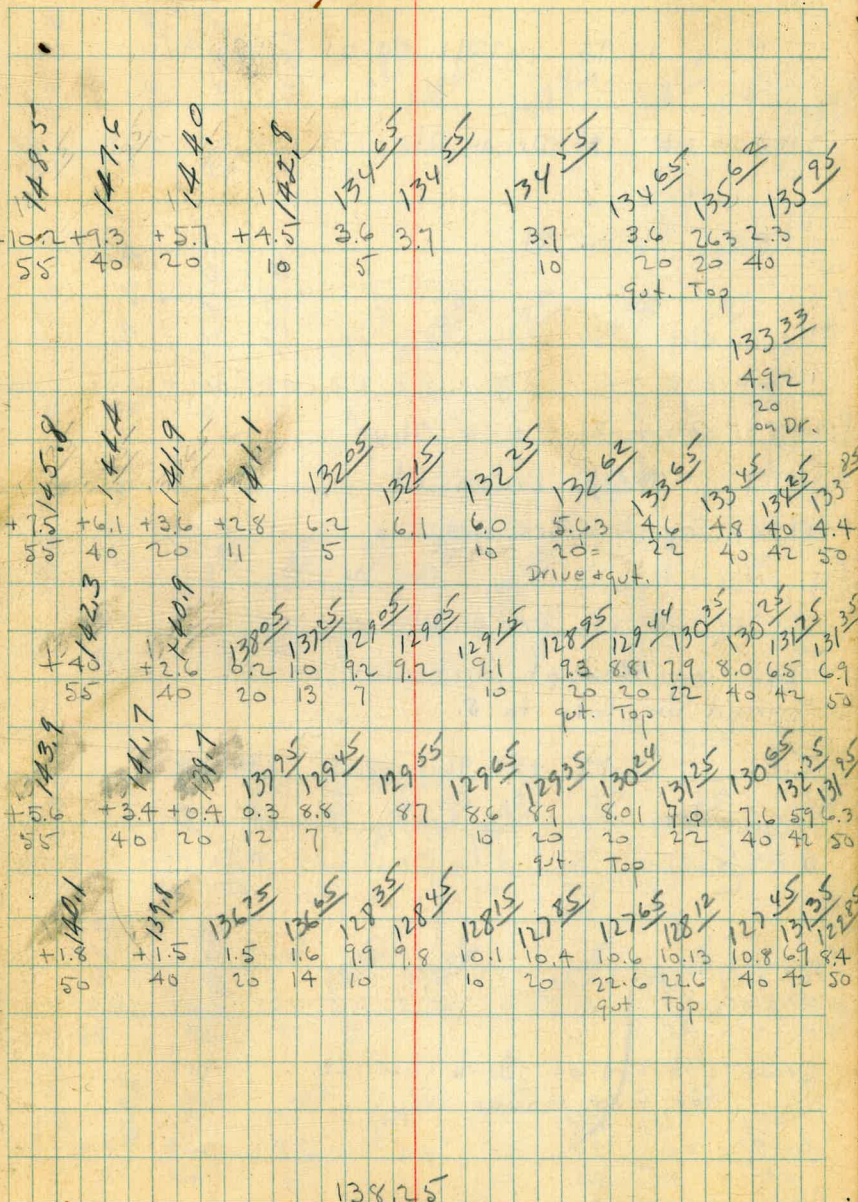 148.5 147.6 144.0 142.8 134 65 134 55 134 55 134 65 135 62 135 95
+10.2 +9.3 +5.7 +4.5 3.6 3.7 3.7 3.6 263 2.3
55 40 20 10 5 10 20 20 40
gut. Top
133 33
4.92
20
on Dr.
145.8 144.4 141.9 141.1 132 05 132 15 132 25 132 62 133 65 133 45 134 25 133 85
+7.5 +6.1 +3.6 +2.8 6.2 6.1 6.0 5.63 4.6 4.8 4.0 4.4
55 40 20 11 5 10 20= 22 40 42 50
Drive + gut.
142.3 140.9 138 05 137 25 129 05 129 05 129 15 128 95 129 44 130 35 130 25 131 75 131 35
+40 +2.6 0.2 1.0 9.2 9.2 9.1 9.3 8.81 7.9 8.0 6.5 6.9
55 40 20 13 7 10 20 20 22 40 42 50
gut. Top
143.9 141.7 139.7 137 95 129 45 129 55 129 65 129 35 130 24 131 25 130 65 132 35 131 95
+5.6 +3.4 +0.4 0.3 8.8 8.7 8.6 8.9 8.01 7.0 7.6 5.9 6.3
55 40 20 12 7 10 20 20 22 40 42 50
gut. Top
140.1 139.8 136 75 136 65 128 35 128 45 128 15 127 85 127 65 128 12 127 45 131 35 129 85
+1.8 +1.5 1.5 1.6 9.9 9.8 10.1 10.4 10.6 10.13 10.8 6.9 8.4
50 40 20 14 10 10 20 22.6 22.6 40 42 50
gut Top
138.25